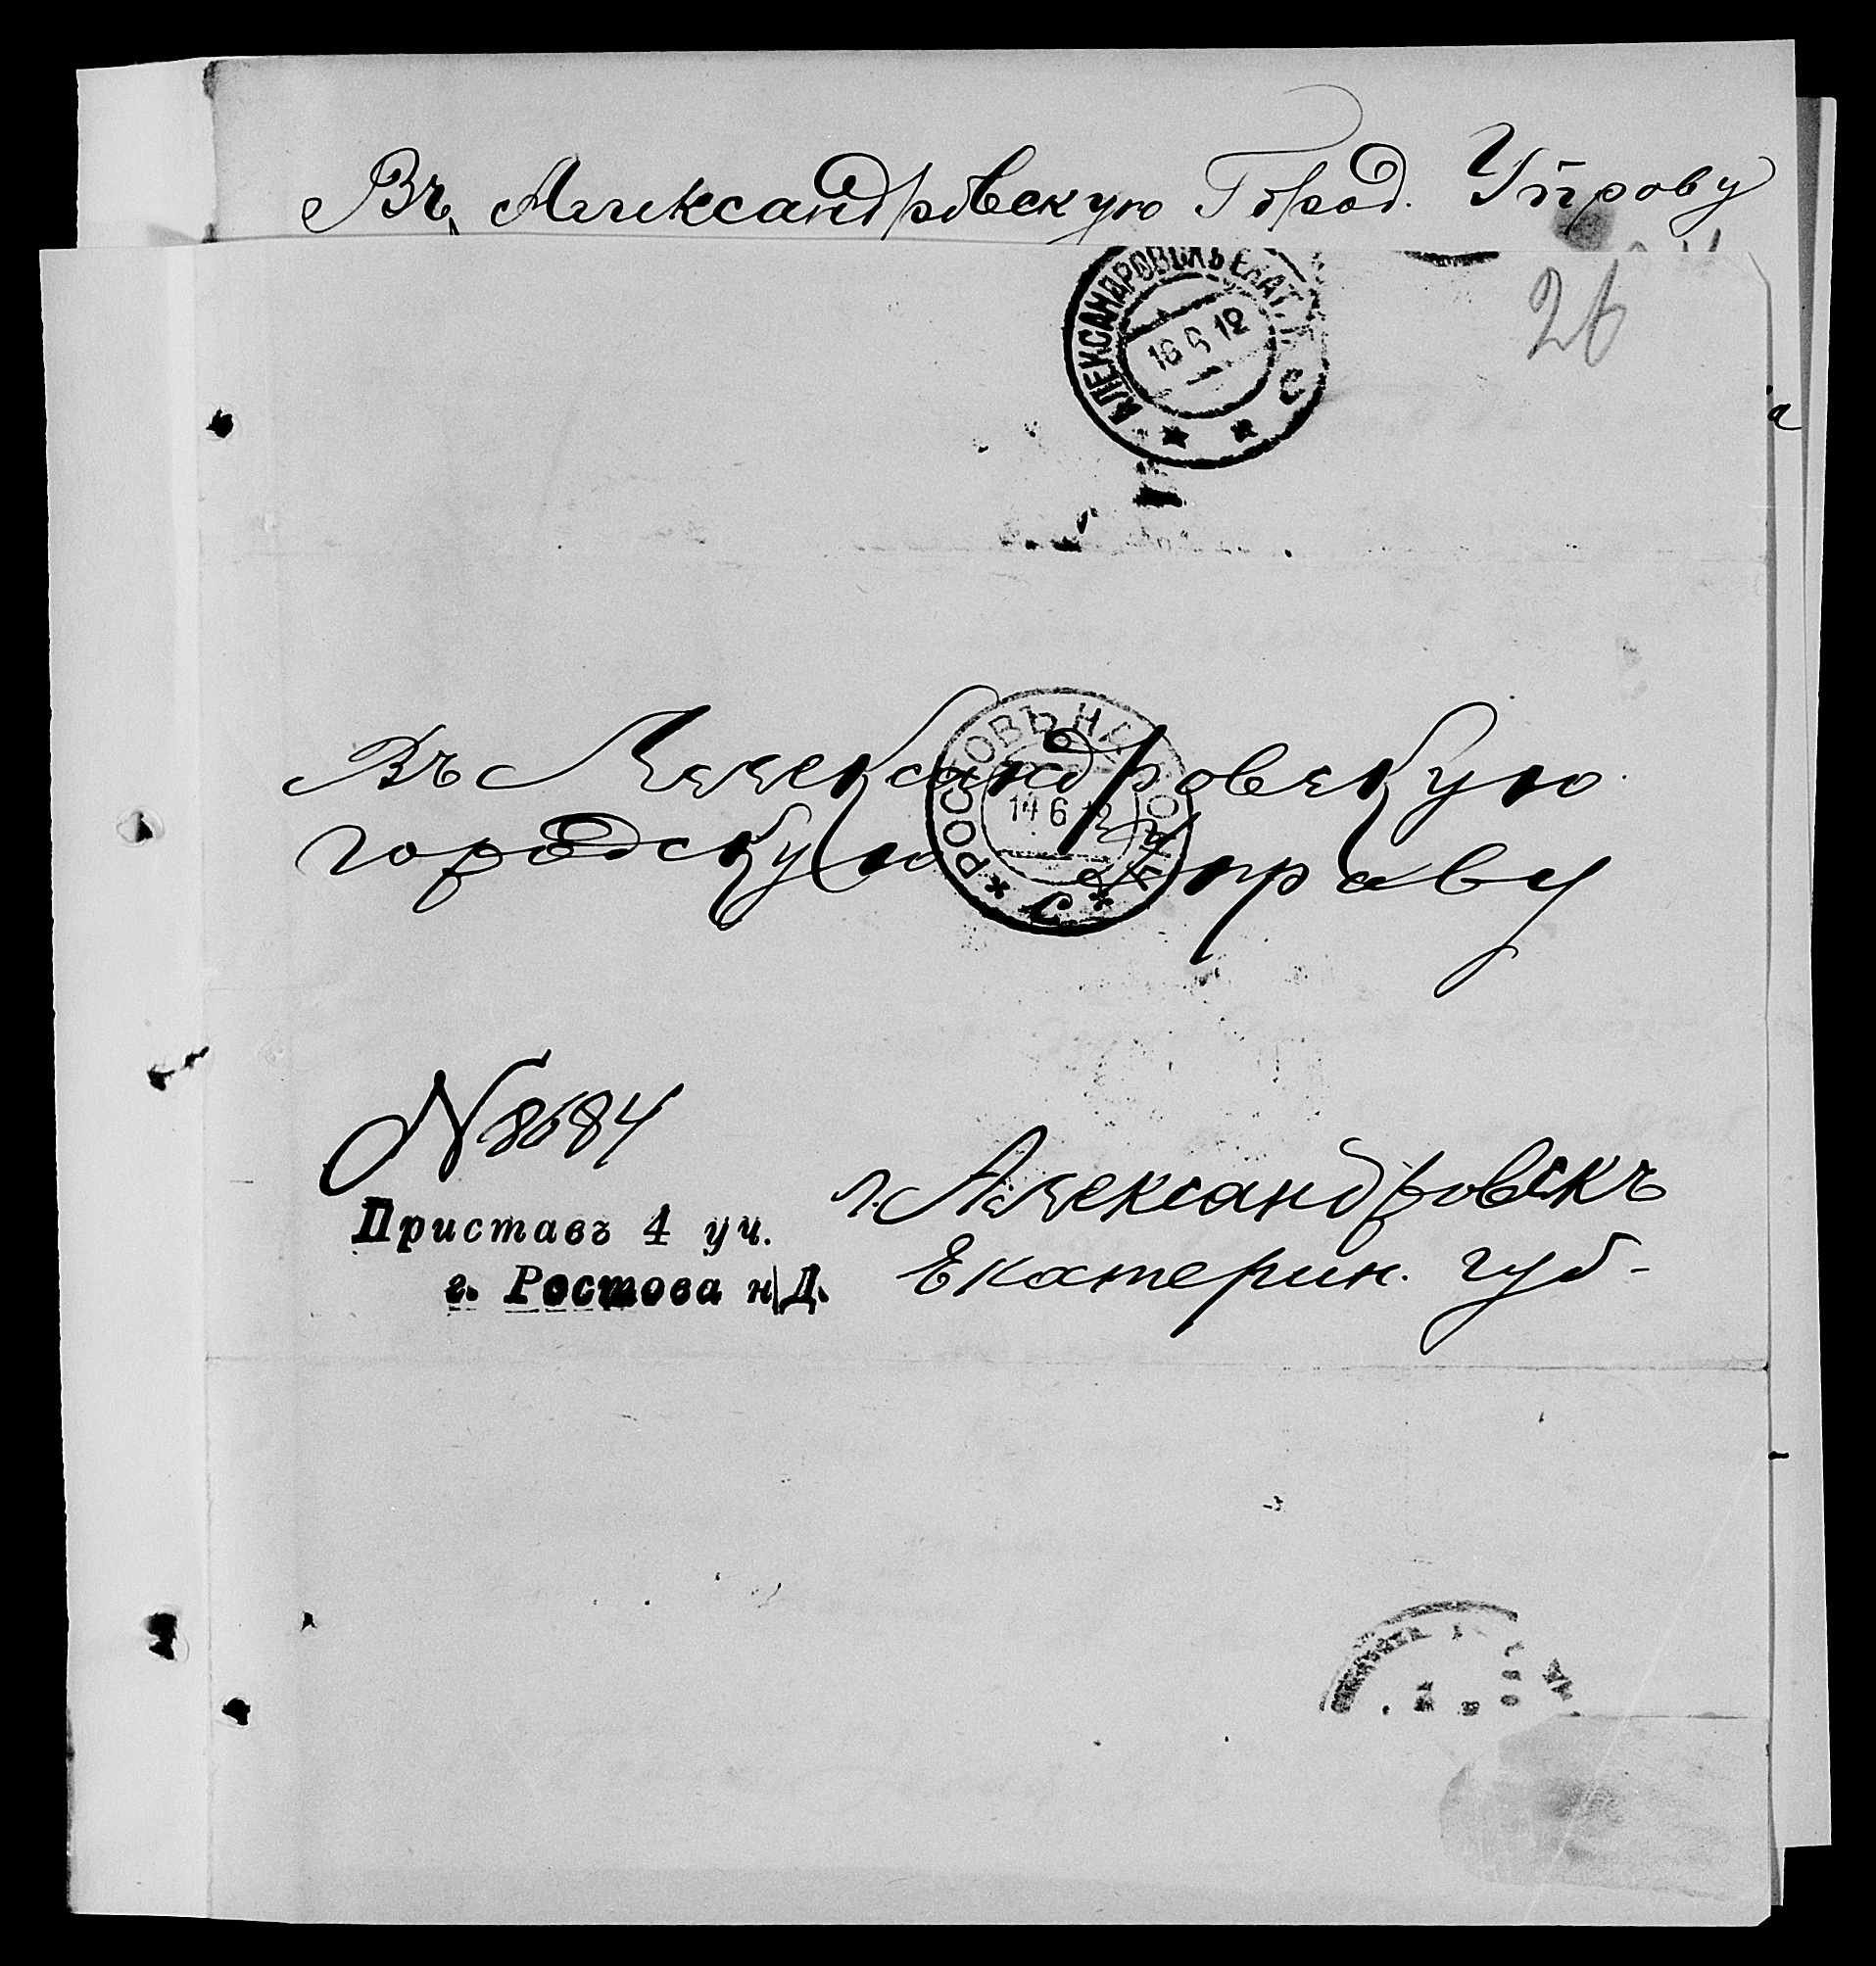 Въ Александровскую Город. Управу
26
АЛЕКСАНДРОВСКЪ ЕКАТ. Г.
16 6 12
Въ Александровскую
городскую Управу
РОСТОВЪ Н. Д.
14 6 12
N 8684
Приставъ 4 уч.
г. Ростова н/Д.
г. Александровскъ
Екатерин. губ-